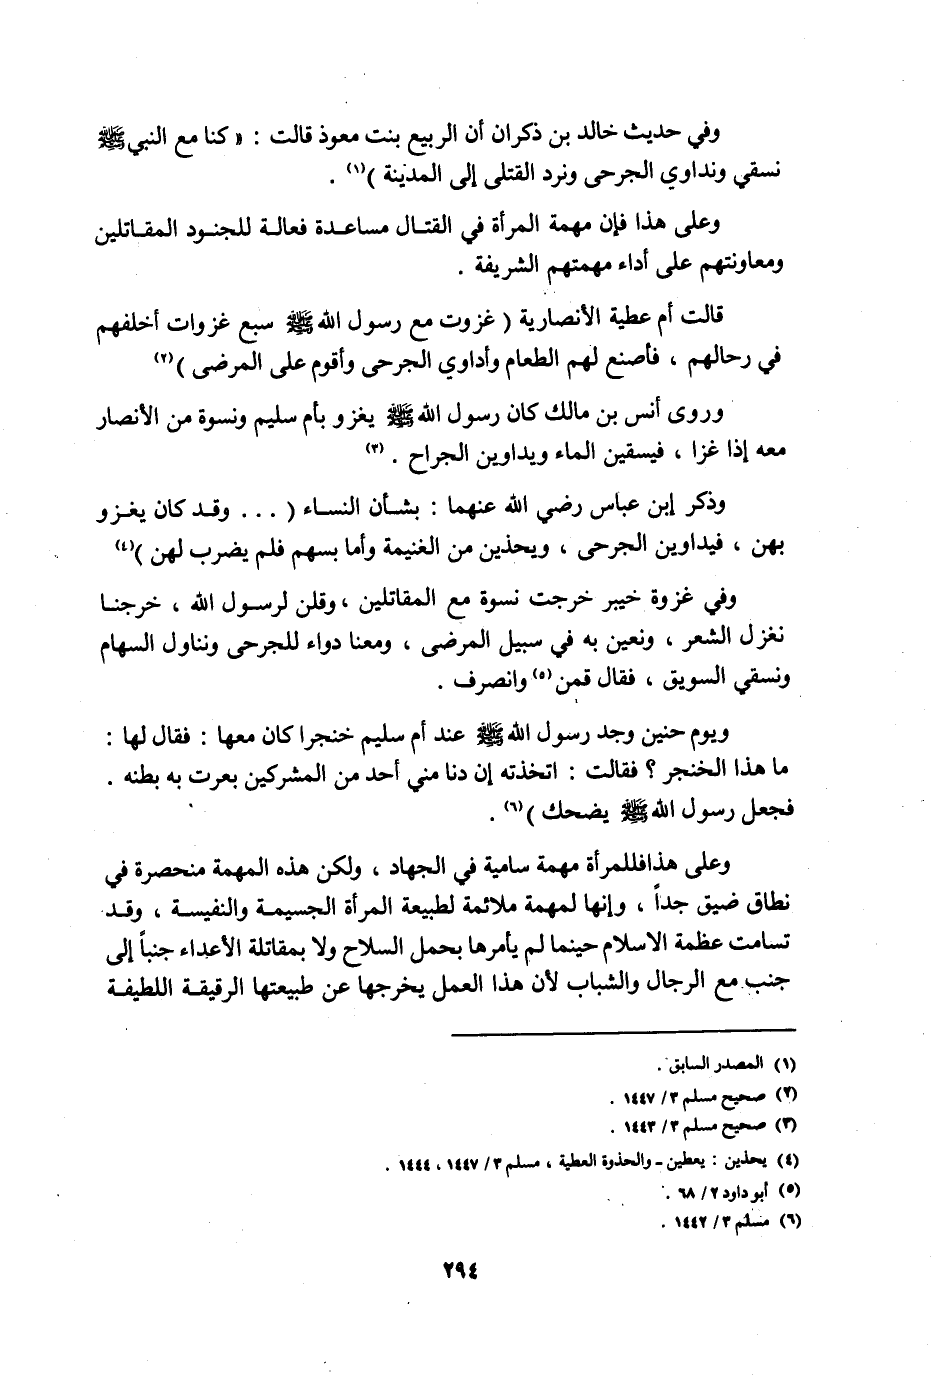 وفي حديث خالد بن ذكران أن الربيع بنت معوذ قالت : « كنا مع النبي ﷺ
نسقي ونداوي الجرحى ونرد القتلى إلى المدينة )(١) .
وعلى هذا فإن مهمة المرأة في القتال مساعدة فعالة للجنود المقاتلين
ومعاونتهم على أداء مهمتهم الشريفة .
قالت أم عطية الأنصارية ( غزوت مع رسول الله ﷺ سبع غزوات أخلفهم
في رحالهم ، فأصنع لهم الطعام وأداوي الجرحى وأقوم على المرضى )(٢)
وروى أنس بن مالك كان رسول الله ﷺ يغزو بأم سليم ونسوة من الأنصار
معه إذا غزا ، فيسقين الماء ويداوين الجراح . (٣)
وذكر إبن عباس رضي الله عنهما : بشأن النساء ( ... وقد كان يغزو
بهن ، فيداوين الجرحى ، ويحذين من الغنيمة وأما بسهم فلم يضرب لهن )(٤)
وفي غزوة خيبر خرجت نسوة مع المقاتلين ، وقلن لرسول الله ، خرجنا
نغزل الشعر ، ونعين به في سبيل المرضى ، ومعنا دواء للجرحى ونناول السهام
ونسقي السويق ، فقال قمن(٥) وانصرف .
ويوم حنين وجد رسول الله ﷺ عند أم سليم خنجرا كان معها : فقال لها :
ما هذا الخنجر ؟ فقالت : اتخذته إن دنا مني أحد من المشركين بعرت به بطنه .
فجعل رسول الله ﷺ يضحك )(٦) .
وعلى هذافللمرأة مهمة سامية في الجهاد ، ولكن هذه المهمة منحصرة في
نطاق ضيق جداً ، وإنها لمهمة ملائمة لطبيعة المرأة الجسيمة والنفيسة ، وقد
تسامت عظمة الاسلام حينما لم يأمرها بحمل السلاح ولا بمقاتلة الأعداء جنباً إلى
جنب مع الرجال والشباب لأن هذا العمل يخرجها عن طبيعتها الرقيقة اللطيفة
(١) المصدر السابق .
(٢) صحيح مسلم ٣/ ١٤٤٧ .
(٣) صحيح مسلم ٣/ ١٤٤٣ .
(٤) يحذين : يعطين - والحذوة العطية ، مسلم ٣/ ١٤٤٧ ، ١٤٤٤ .
(٥) أبو داود ٢/ ٦٨ .
(٦) مسلم ٣/ ١٤٤٢ .
٢٩٤